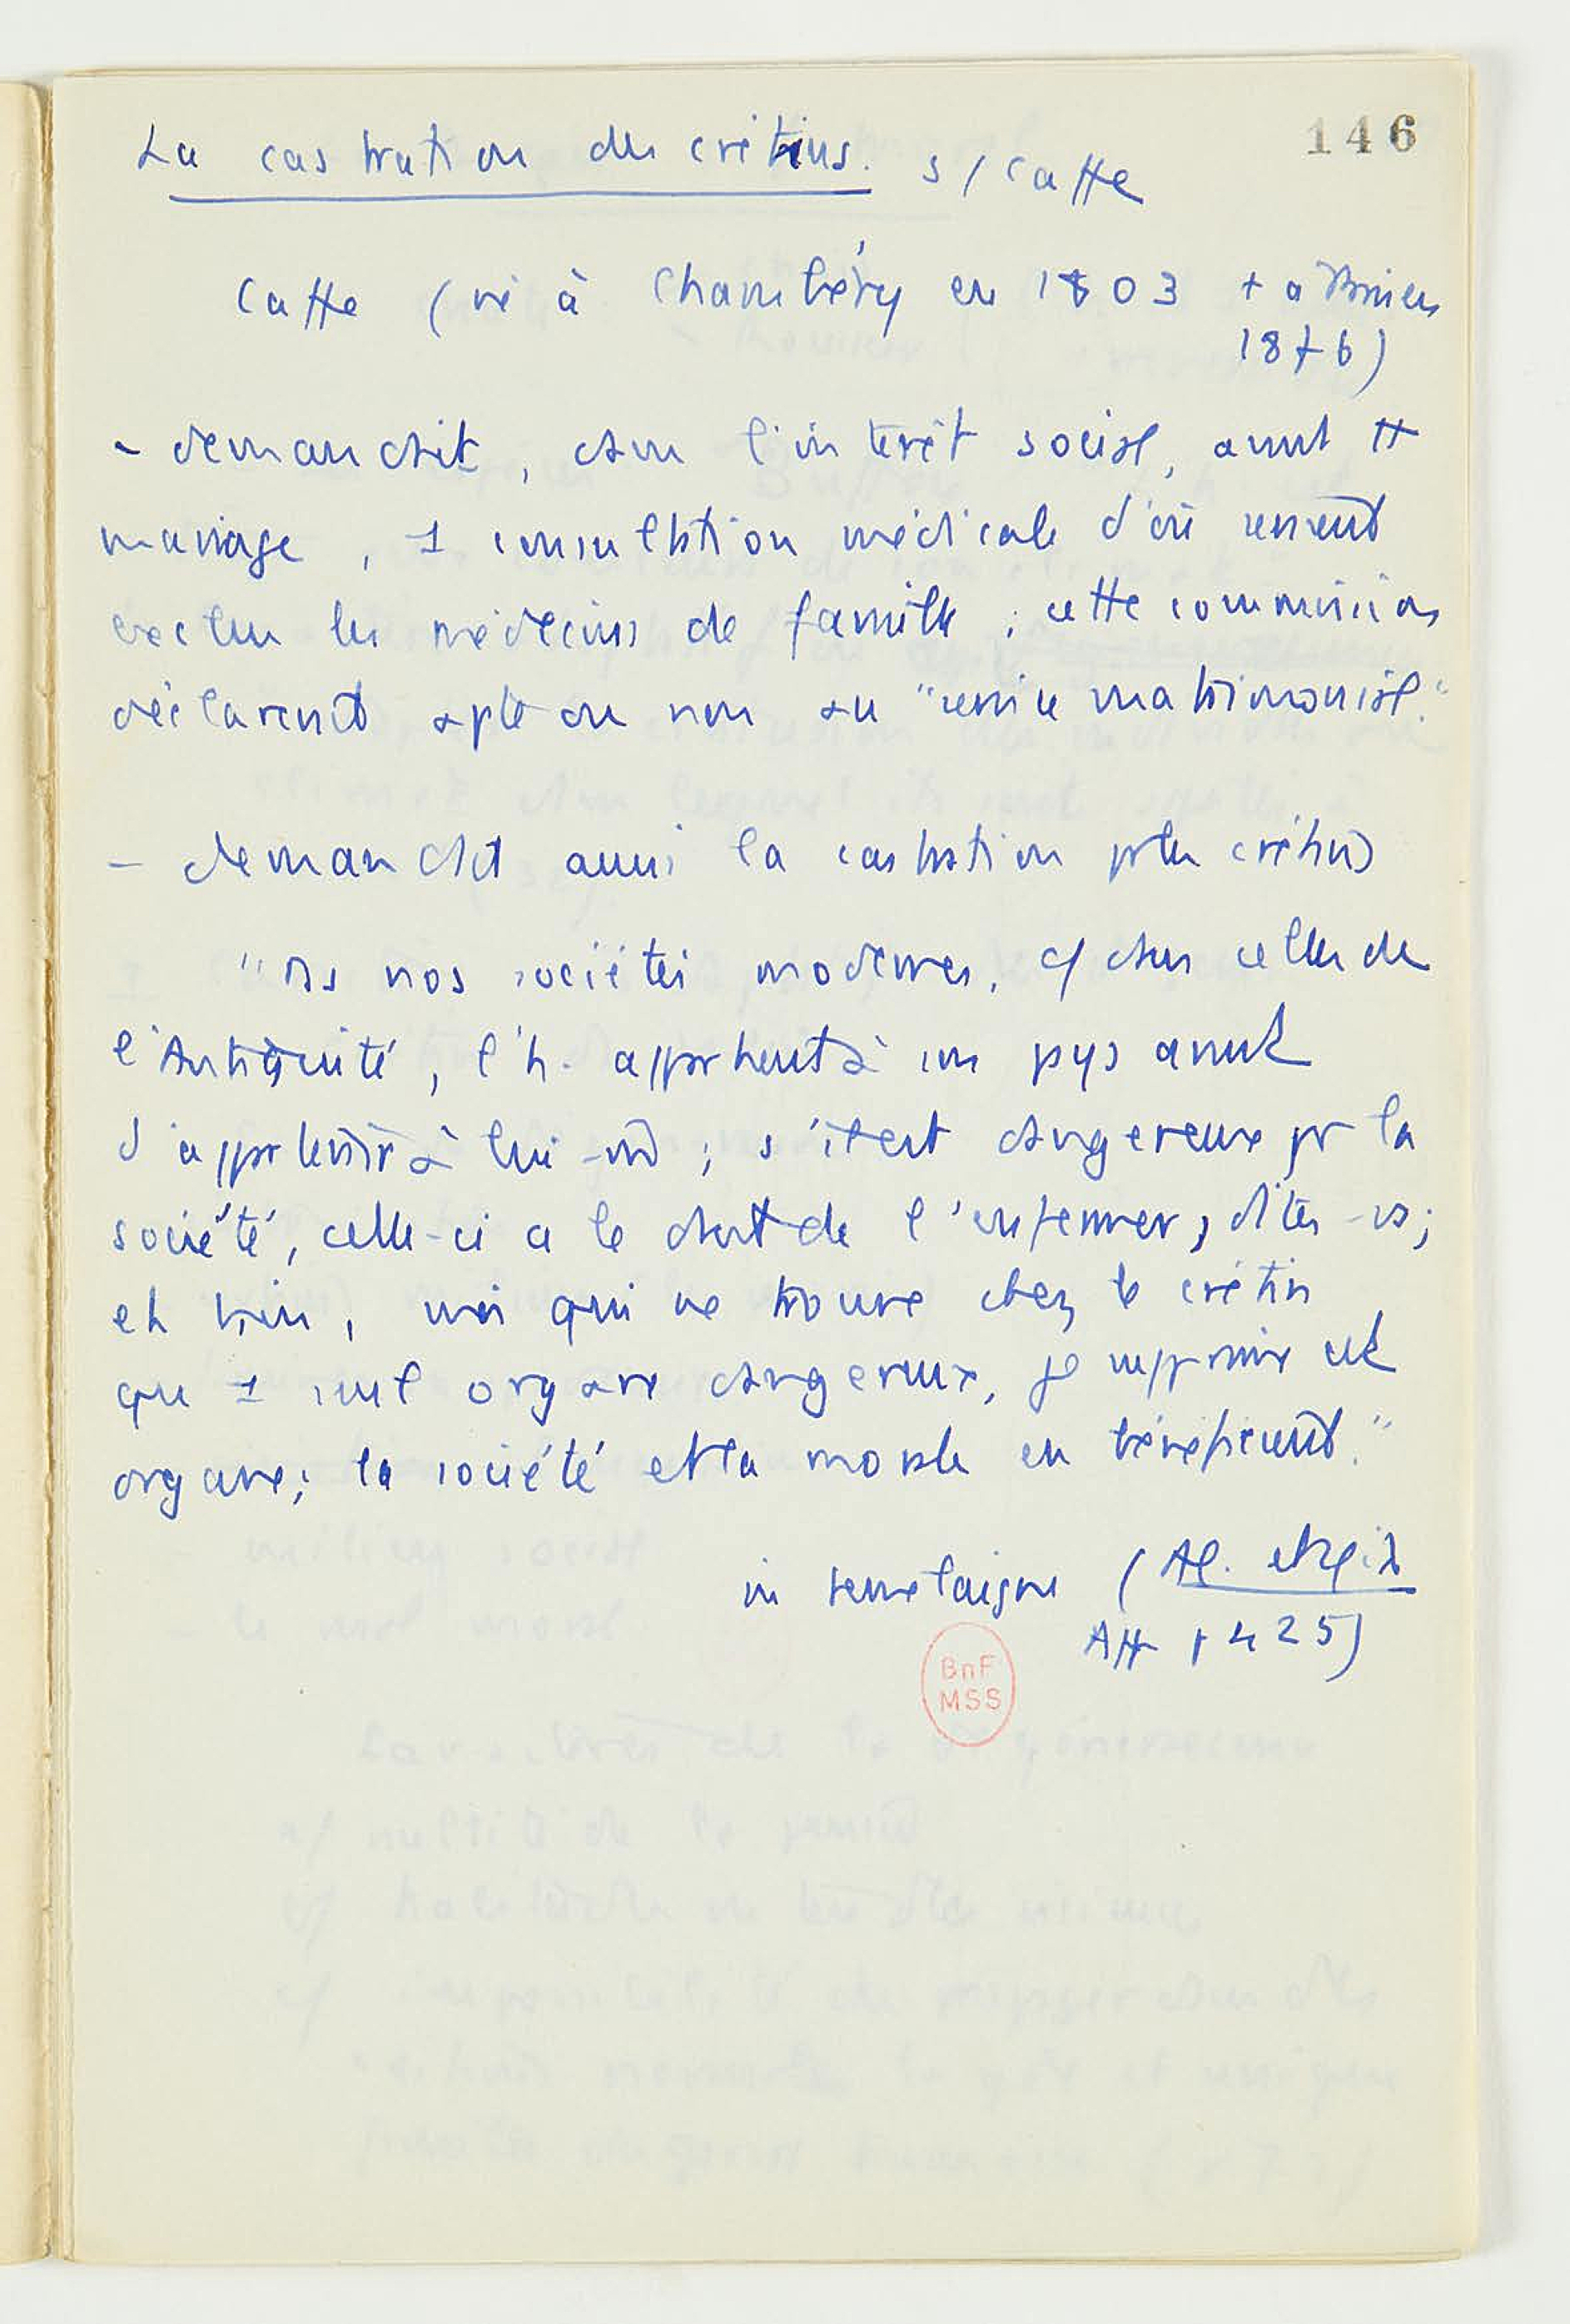 146
La castration des crétins. s/ Caffe
Caffe (né à Chambéry en 1803 + à
1876)
- demandait, dans l'intérêt social, avant tt
mariage, 1 consultation médicale d'où seraient
exclus les médecins de famille ; cette commission
déclarerait apte ou non au "service matrimonial."
- demandait aussi la castration pr les crétins
"Ds nos sociétés modernes, c/ dans celles de
l'Antiquité, l'h. appartient à son pays avant
d'appartenir à lui-m̂ ; s'il est dangereux pr la
société, celle-ci a le droit de l'enfermer, dites-vs ;
eh bien, moi qui ne trouve chez le crétin
qu'1 seul organe dangereux, je supprime cet
organe ; la société et la morale en bénéficieront."
in Semelaigne (Al. et
Att p 425)
BnF
MSS